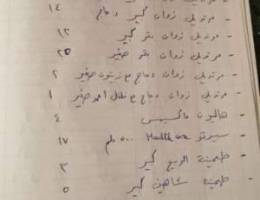 - مرتديلي زوان كبير دجاج ١٤
- مرتديلي زوان بقر كبير ١٢
- مرتديلي زوان بقر صغير ٢٥
- مرتديلي زوان دجاج مع زيتون صغير ٢
- مرتديلي زوان دجاج مع فلفل احمر صغير ١
- هاليون ماكسيس ٤
- سبيرتو Health care ٥٠٠ ملم ١٧
- طحينة الربيع كبير ٣
- طحينة شاهين كبير ٥